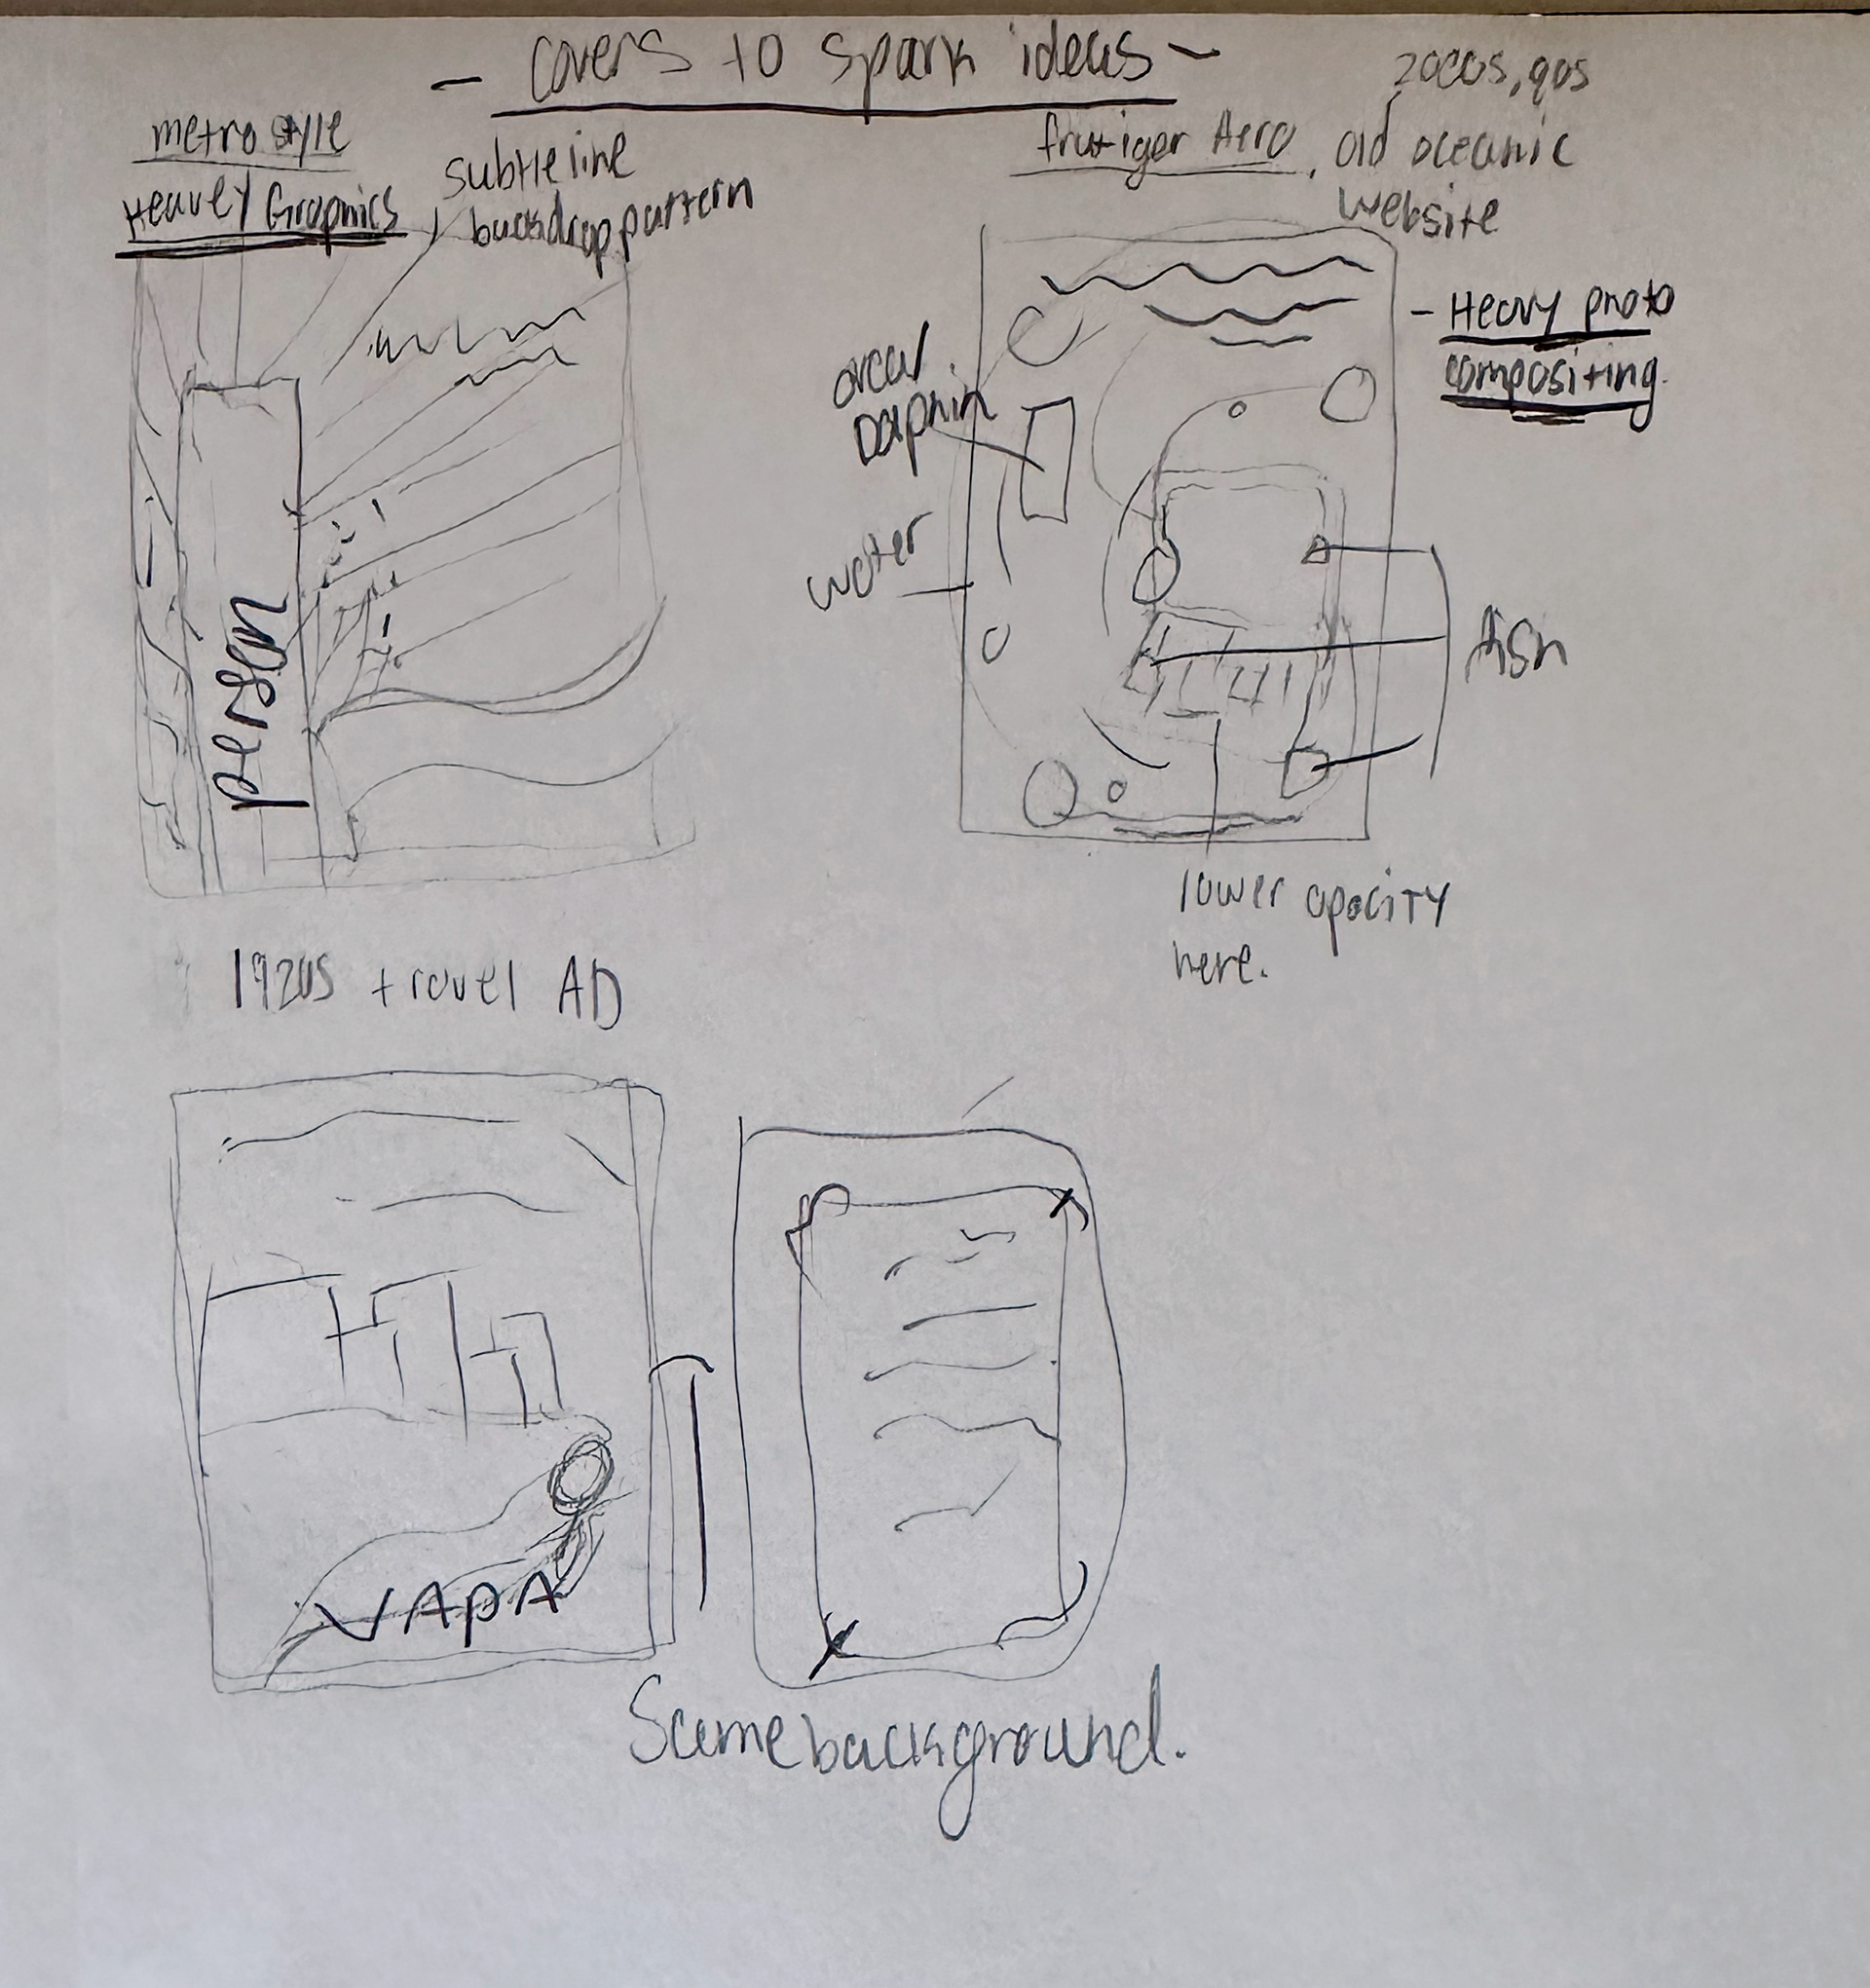 - Covers to spark ideas -
metro style
Heavey Graphics
subtle line
backdrop pattern
2000s, 90s
frutiger Aero, old oceanic
website
- Heavy photo
compositing.
orca/
Dolphin
water
person
fish
lower opacity
here.
1920s travel AD
VAPA
Same background.